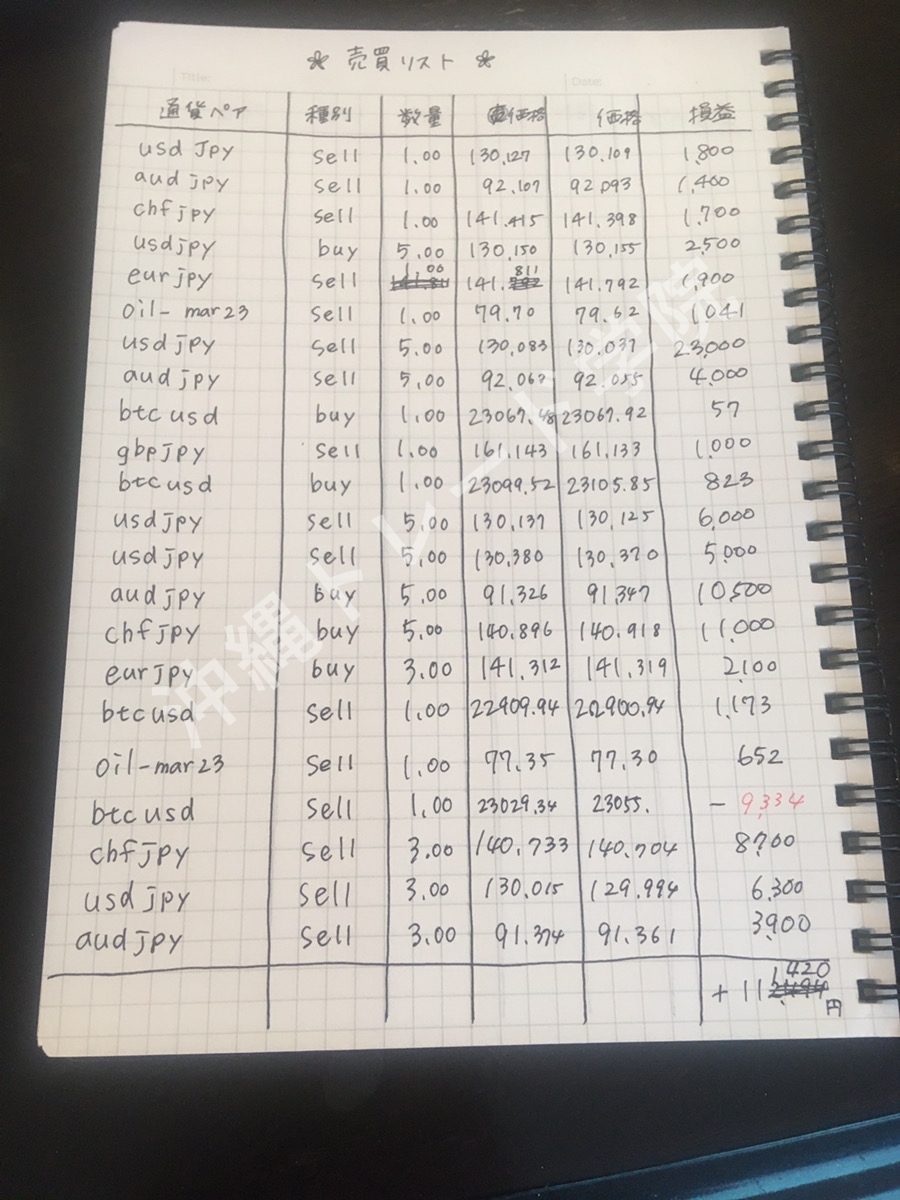 Title:
Date:
* 売買リスト *
通貨ペア 種別 数量 価格 価格 損益
usd Jpy sell 1.00 130.127 130.109 1,800
aud jpy sell 1.00 92.107 92.093 1,400
chf jpy sell 1.00 141.415 141.398 1,700
usdjpy buy 5.00 130.150 130.155 2,500
eurjpy sell 1.00 141.811 141.792 1,900
oil-mar23 sell 1.00 79.70 79.62 1041
usdjpy sell 5.00 130.083 130.037 23,000
audjpy sell 5.00 92.063 92.055 4,000
btcusd buy 1.00 23067.48 23067.92 57
gbpjpy sell 1.00 161.143 161.133 1,000
btcusd buy 1.00 23099.52 23105.85 823
usdjpy sell 5.00 130.137 130.125 6,000
usdjpy sell 5.00 130.380 130.370 5,000
audjpy buy 5.00 91.326 91.347 10,500
chfjpy buy 5.00 140.896 140.918 11,000
eurjpy buy 3.00 141.312 141.319 2,100
btcusd sell 1.00 22909.94 22900.94 1,173
oil-mar23 sell 1.00 77.35 77.30 652
btcusd sell 1.00 23029.34 23055. - 9,334
chfjpy sell 3.00 140.733 140.704 8,700
usdjpy sell 3.00 130.015 129.994 6,300
audjpy sell 3.00 91.374 91.361 3,900
+ 111,420円
沖縄トレード学院